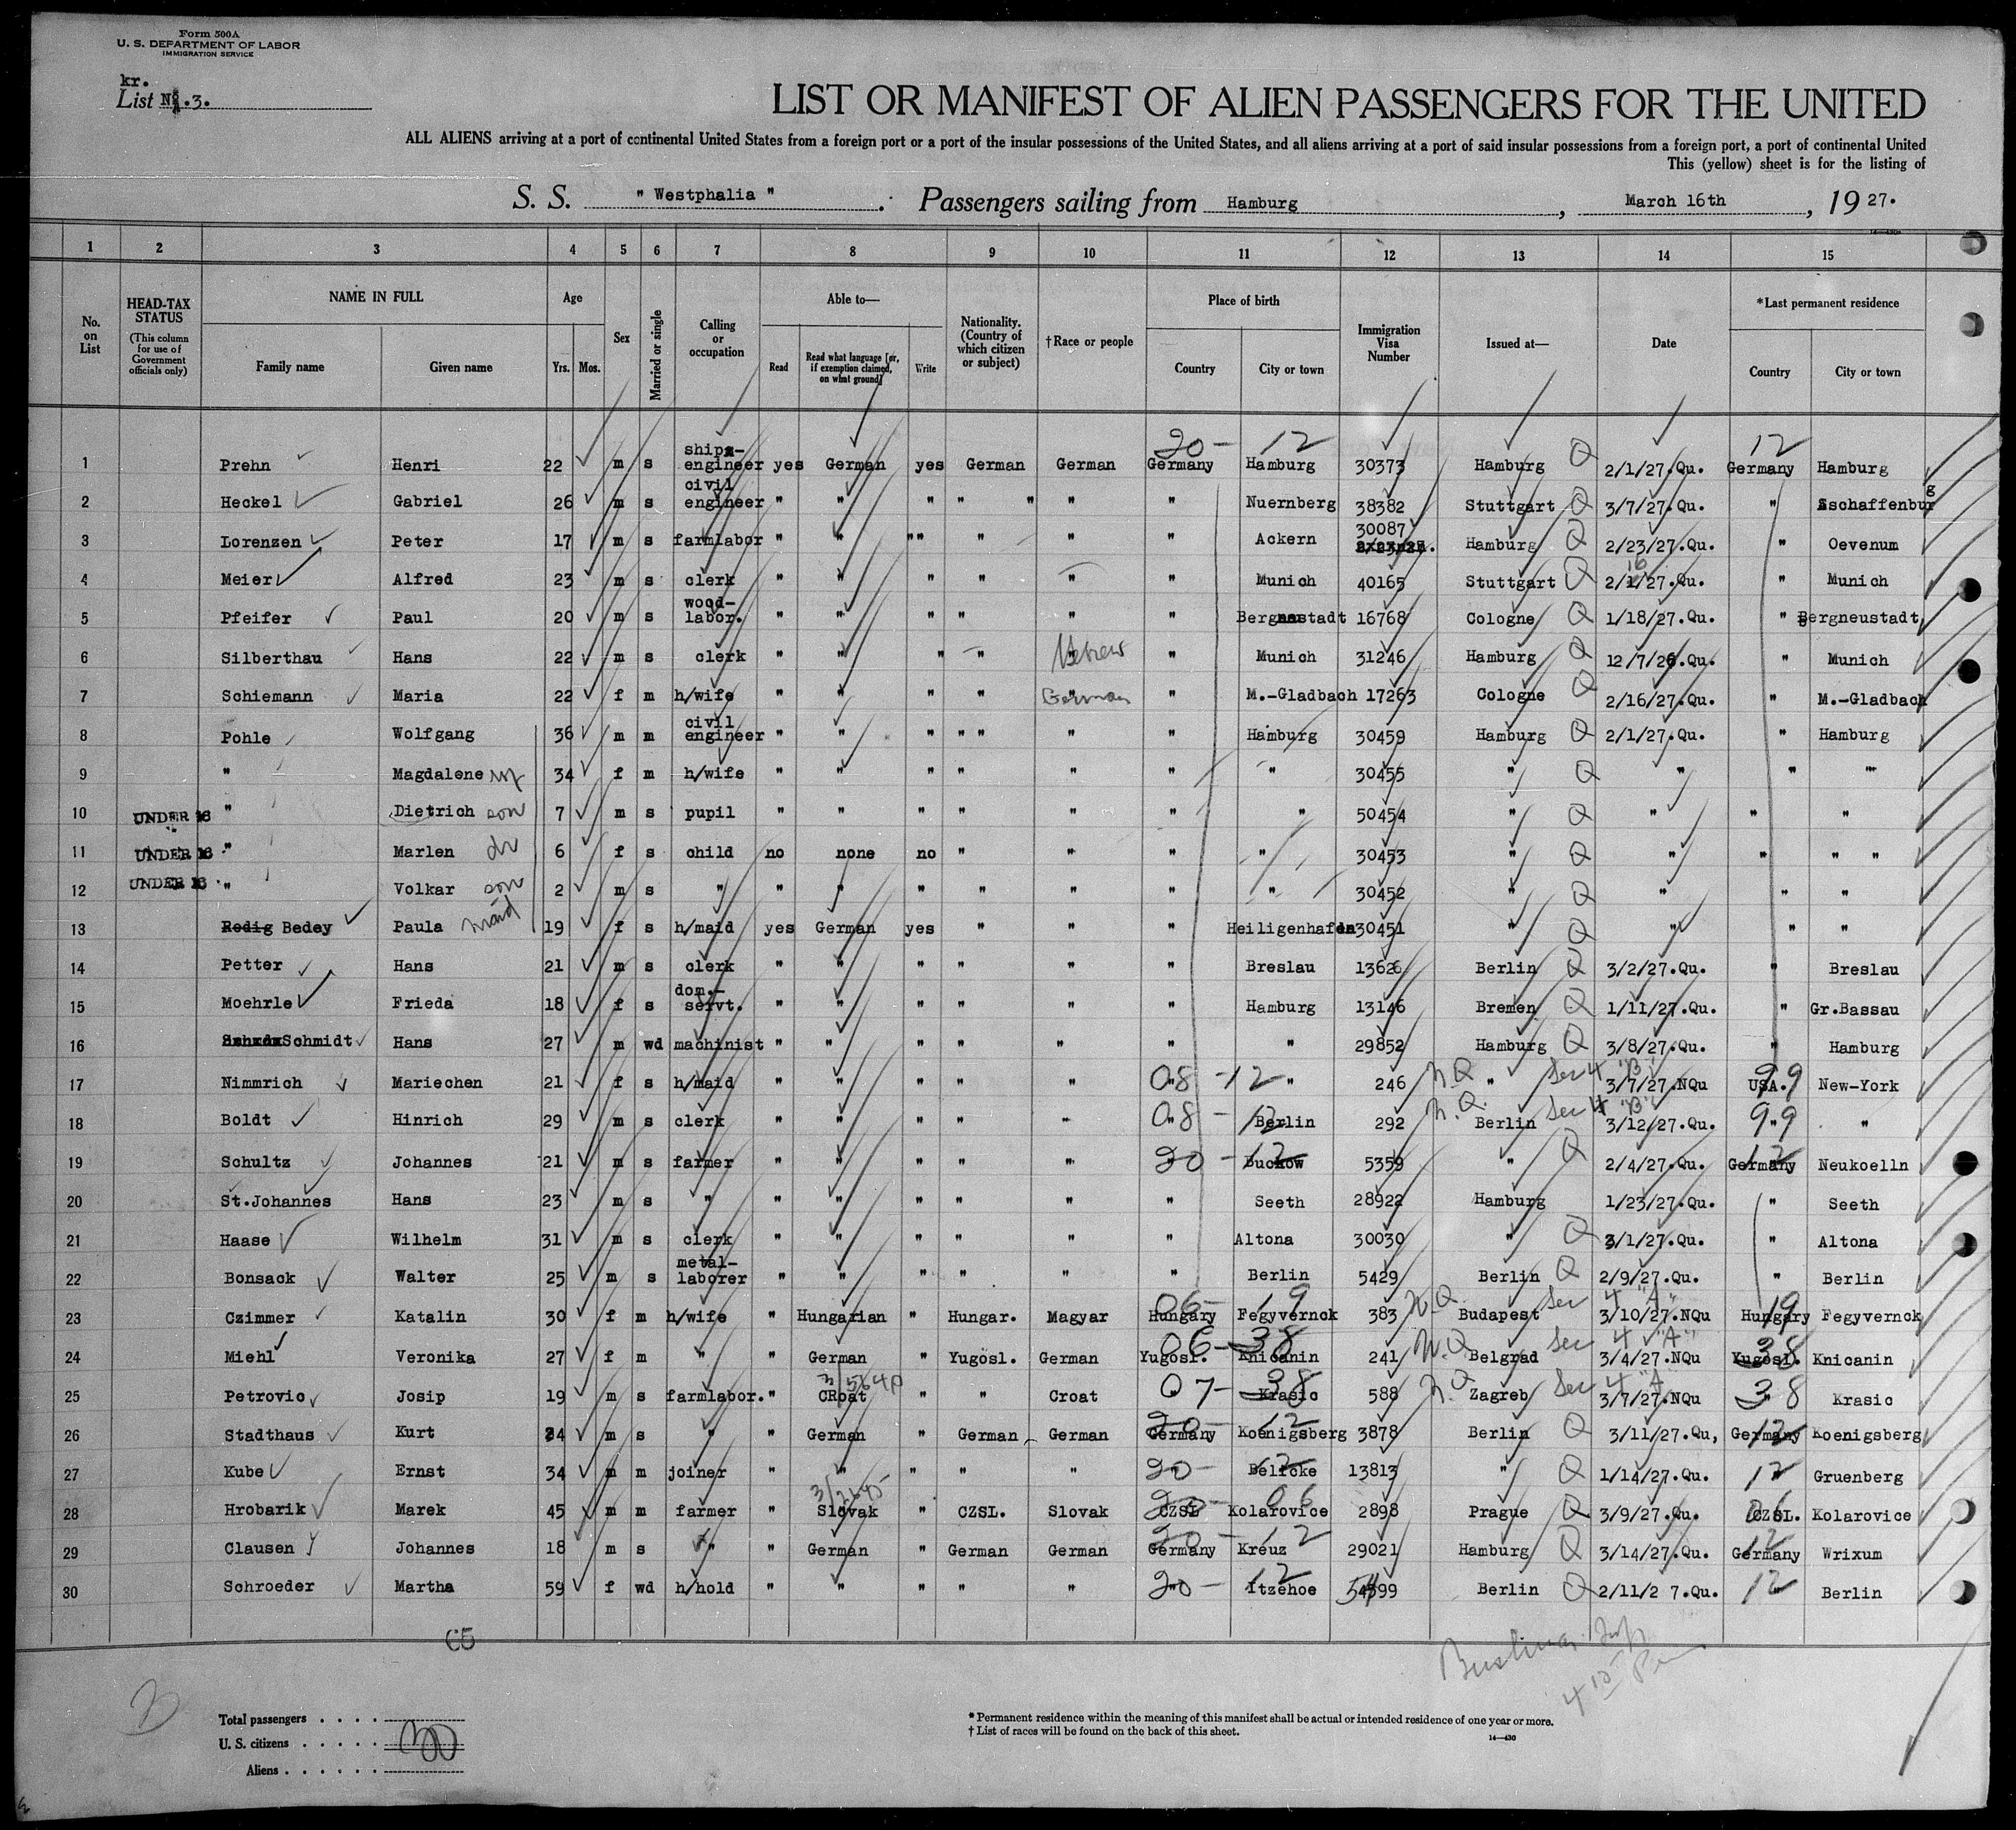 Form 500A
U. S. DEPARTMENT OF LABOR
IMMIGRATION SERVICE
kr.
List No.3.
LIST OR MANIFEST OF ALIEN PASSENGERS FOR THE UNITED
ALL ALIENS arriving at a port of continental United States from a foreign port or a port of the insular possessions of the United States, and all aliens arriving at a port of said insular possessions from a foreign port, a port of continental United
This (yellow) sheet is for the listing of
S. S. " Westphalia ". Passengers sailing from Hamburg, March 16th, 1927.
1 2 3 4 5 6 7 8 9 10 11 12 13 14 15
No. on List
HEAD-TAX STATUS (This column for use of Government officials only)
NAME IN FULL Family name Given name
Age Yrs. Mos.
Sex
Married or single
Calling or occupation
Able to— Read Read what language [or, if exemption claimed, on what ground] Write
Nationality. (Country of which citizen or subject)
†Race or people
Place of birth Country City or town
Immigration Visa Number
Issued at—
Date
*Last permanent residence Country City or town
20- 12 12
1 Prehn Henri 22 m s ships-engineer yes German yes German German Germany Hamburg 30373 Hamburg Q 2/1/27.Qu. Germany Hamburg
2 Heckel Gabriel 26 m s civil engineer " " " " " " " Nuernberg 38382 Stuttgart Q 3/7/27.Qu. " Aschaffenburg
3 Lorenzen Peter 17 m s farmlabor " " "" " " " Ackern 30087 Hamburg Q 2/23/27.Qu. " Oevenum
4 Meier Alfred 23 m s clerk " " " " " " Munich 40165 Stuttgart Q 2/1/27.Qu. " Munich
5 Pfeifer Paul 20 m s wood-labor. " " " " " " Bergneustadt 16768 Cologne Q 1/18/27.Qu. " Bergneustadt
6 Silberthau Hans 22 m s clerk " " " " Hebrew " Munich 31246 Hamburg Q 12/7/26.Qu. " Munich
7 Schiemann Maria 22 f m h/wife " " " " German " M.-Gladbach 17263 Cologne Q 2/16/27.Qu. " M.-Gladbach
8 Pohle Wolfgang 36 m m civil engineer " " " " " " " Hamburg 30459 Hamburg Q 2/1/27.Qu. " Hamburg
9 " Magdalene wf 34 f m h/wife " " " " " " " 30455 " Q " " "
10 UNDER 16 " Dietrich son 7 m s pupil " " " " " " " 50454 " Q " " "
11 UNDER 16 " Marlen dr 6 f s child no none no " " " " 30453 " Q " " " "
12 UNDER 16 " Volkar son 2 m s " " " " " " " " 30452 " Q " " "
13 Redig Bedey Paula maid 19 f s h/maid yes German yes " " " Heiligenhafen 30451 " Q " " "
14 Petter Hans 21 m s clerk " " " " " " Breslau 13626 Berlin Q 3/2/27.Qu. " Breslau
15 Moehrle Frieda 18 f s dom.-servt. " " " " " " Hamburg 13146 Bremen Q 1/11/27.Qu. " Gr.Bassau
16 Schmidt Hans 27 m wd machinist " " " " " " " 29852 Hamburg Q 3/8/27.Qu. " Hamburg
17 Nimmrich Mariechen 21 f s h/maid " " " " " 08 -12 " 246 N.Q. " Sec 4 "B" 3/7/27.NQu USA. 99 New-York
18 Boldt Hinrich 29 m s clerk " " " " " 08 - 12 Berlin 292 N.Q. Berlin Sec 4 "B" 3/12/27.Qu. 99 "
19 Schultz Johannes 21 m s farmer " " " " " 20 - 12 Buckow 5359 " Q 2/4/27.Qu. Germany 12 Neukoelln
20 St.Johannes Hans 23 m s " " " " " " " Seeth 28922 Hamburg 1/23/27.Qu. " Seeth
21 Haase Wilhelm 31 m s clerk " " " " " " Altona 30030 " Q 3/1/27.Qu. " Altona
22 Bonsack Walter 25 m s metal-laborer " " " " " " Berlin 5429 Berlin Q 2/9/27.Qu. " Berlin
23 Czimmer Katalin 30 f m h/wife " Hungarian " Hungar. Magyar Hungary 06- 19 Fegyvernck 383 N.Q. Budapest Sec 4 "A" 3/10/27.NQu Hungary 19 Fegyvernck
24 Miehl Veronika 27 f m " " German " Yugosl. German Yugosl. 06-38 Knicanin 241 N.Q. Belgrad Sec 4 "A" 3/4/27.NQu Yugosl. 38 Knicanin
25 Petrovic Josip 19 m s farmlabor. " CRoat " " Croat 07- 38 Krasic 588 N.Q. Zagreb Sec 4 "A" 3/7/27.NQu 38 Krasic
26 Stadthaus Kurt 24 m s " " German " German German Germany 20- 12 Koenigsberg 3878 Berlin Q 3/11/27.Qu, Germany 12 Koenigsberg
27 Kube Ernst 34 m m joiner " " " " " 20- 12 Belicke 13813 " Q 1/14/27.Qu. 12 Gruenberg
28 Hrobarik Marek 45 m m farmer " Slovak " CZSL. Slovak CZSL 20- 06 Kolarovice 2898 Prague Q 3/9/27.Qu. CZSL. 06 Kolarovice
29 Clausen Johannes 18 m s " " German " German German Germany 20-12 Kreuz 29021 Hamburg Q 3/14/27.Qu. Germany 12 Wrixum
30 Schroeder Martha 59 f wd h/hold " " " " " 20- 12 Itzehoe 54399 Berlin Q 2/11/2 7.Qu. 12 Berlin
C5
Total passengers . . . .
U. S. citizens . . . . . 30
Aliens . . . . . .
* Permanent residence within the meaning of this manifest shall be actual or intended residence of one year or more.
† List of races will be found on the back of this sheet.
14—430